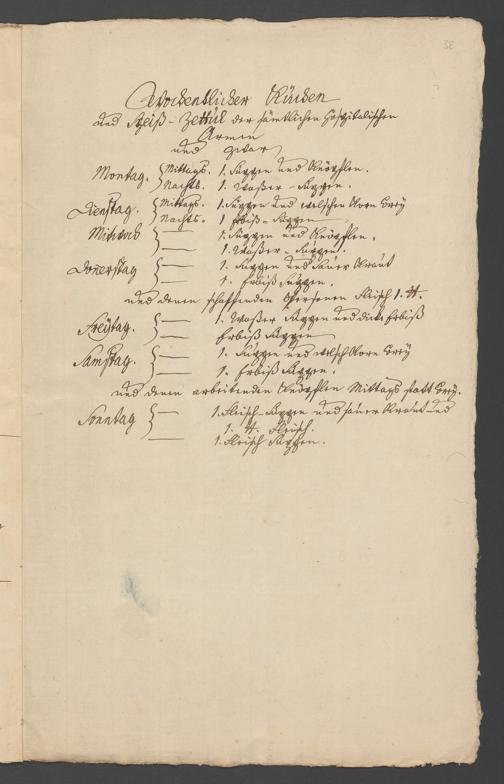 38
Wochentlicher Kuchen
und Speiß-Zettul der sämtlichen Hospitalischen
Armen
und zwar
Montag. { Mittags. 1. Suppen und Knöpflen.
Nachts. 1. Waßer-Suppen.
Dienstag. { Mittags. 1. Suppen und welschen Korn Brey
Nachts. 1 Erbiß-Suppen
Mittwo { — 1. Suppen und Knöpflen.
— 1. Waßer-Suppen.
Donerstag { — 1. Suppen und Sauer Kraut
— 1. Erbiß Suppen.
und denen schaffenden Personen Fleisch 1. ℔.
Freytag. { — 1. Waßer Suppen und dicke Erbiß
— Erbiß Suppen
Samstag. { — 1. Suppen und welsch Korn Brey
— 1. Erbiß Suppen.
und denen arbeitenden Knöpflen Mittags statt Brey.
Sonntag { — 1. Fleisch-Suppen und sauer Kraut und
1. ℔. Fleisch.
— 1. Fleisch Suppen.